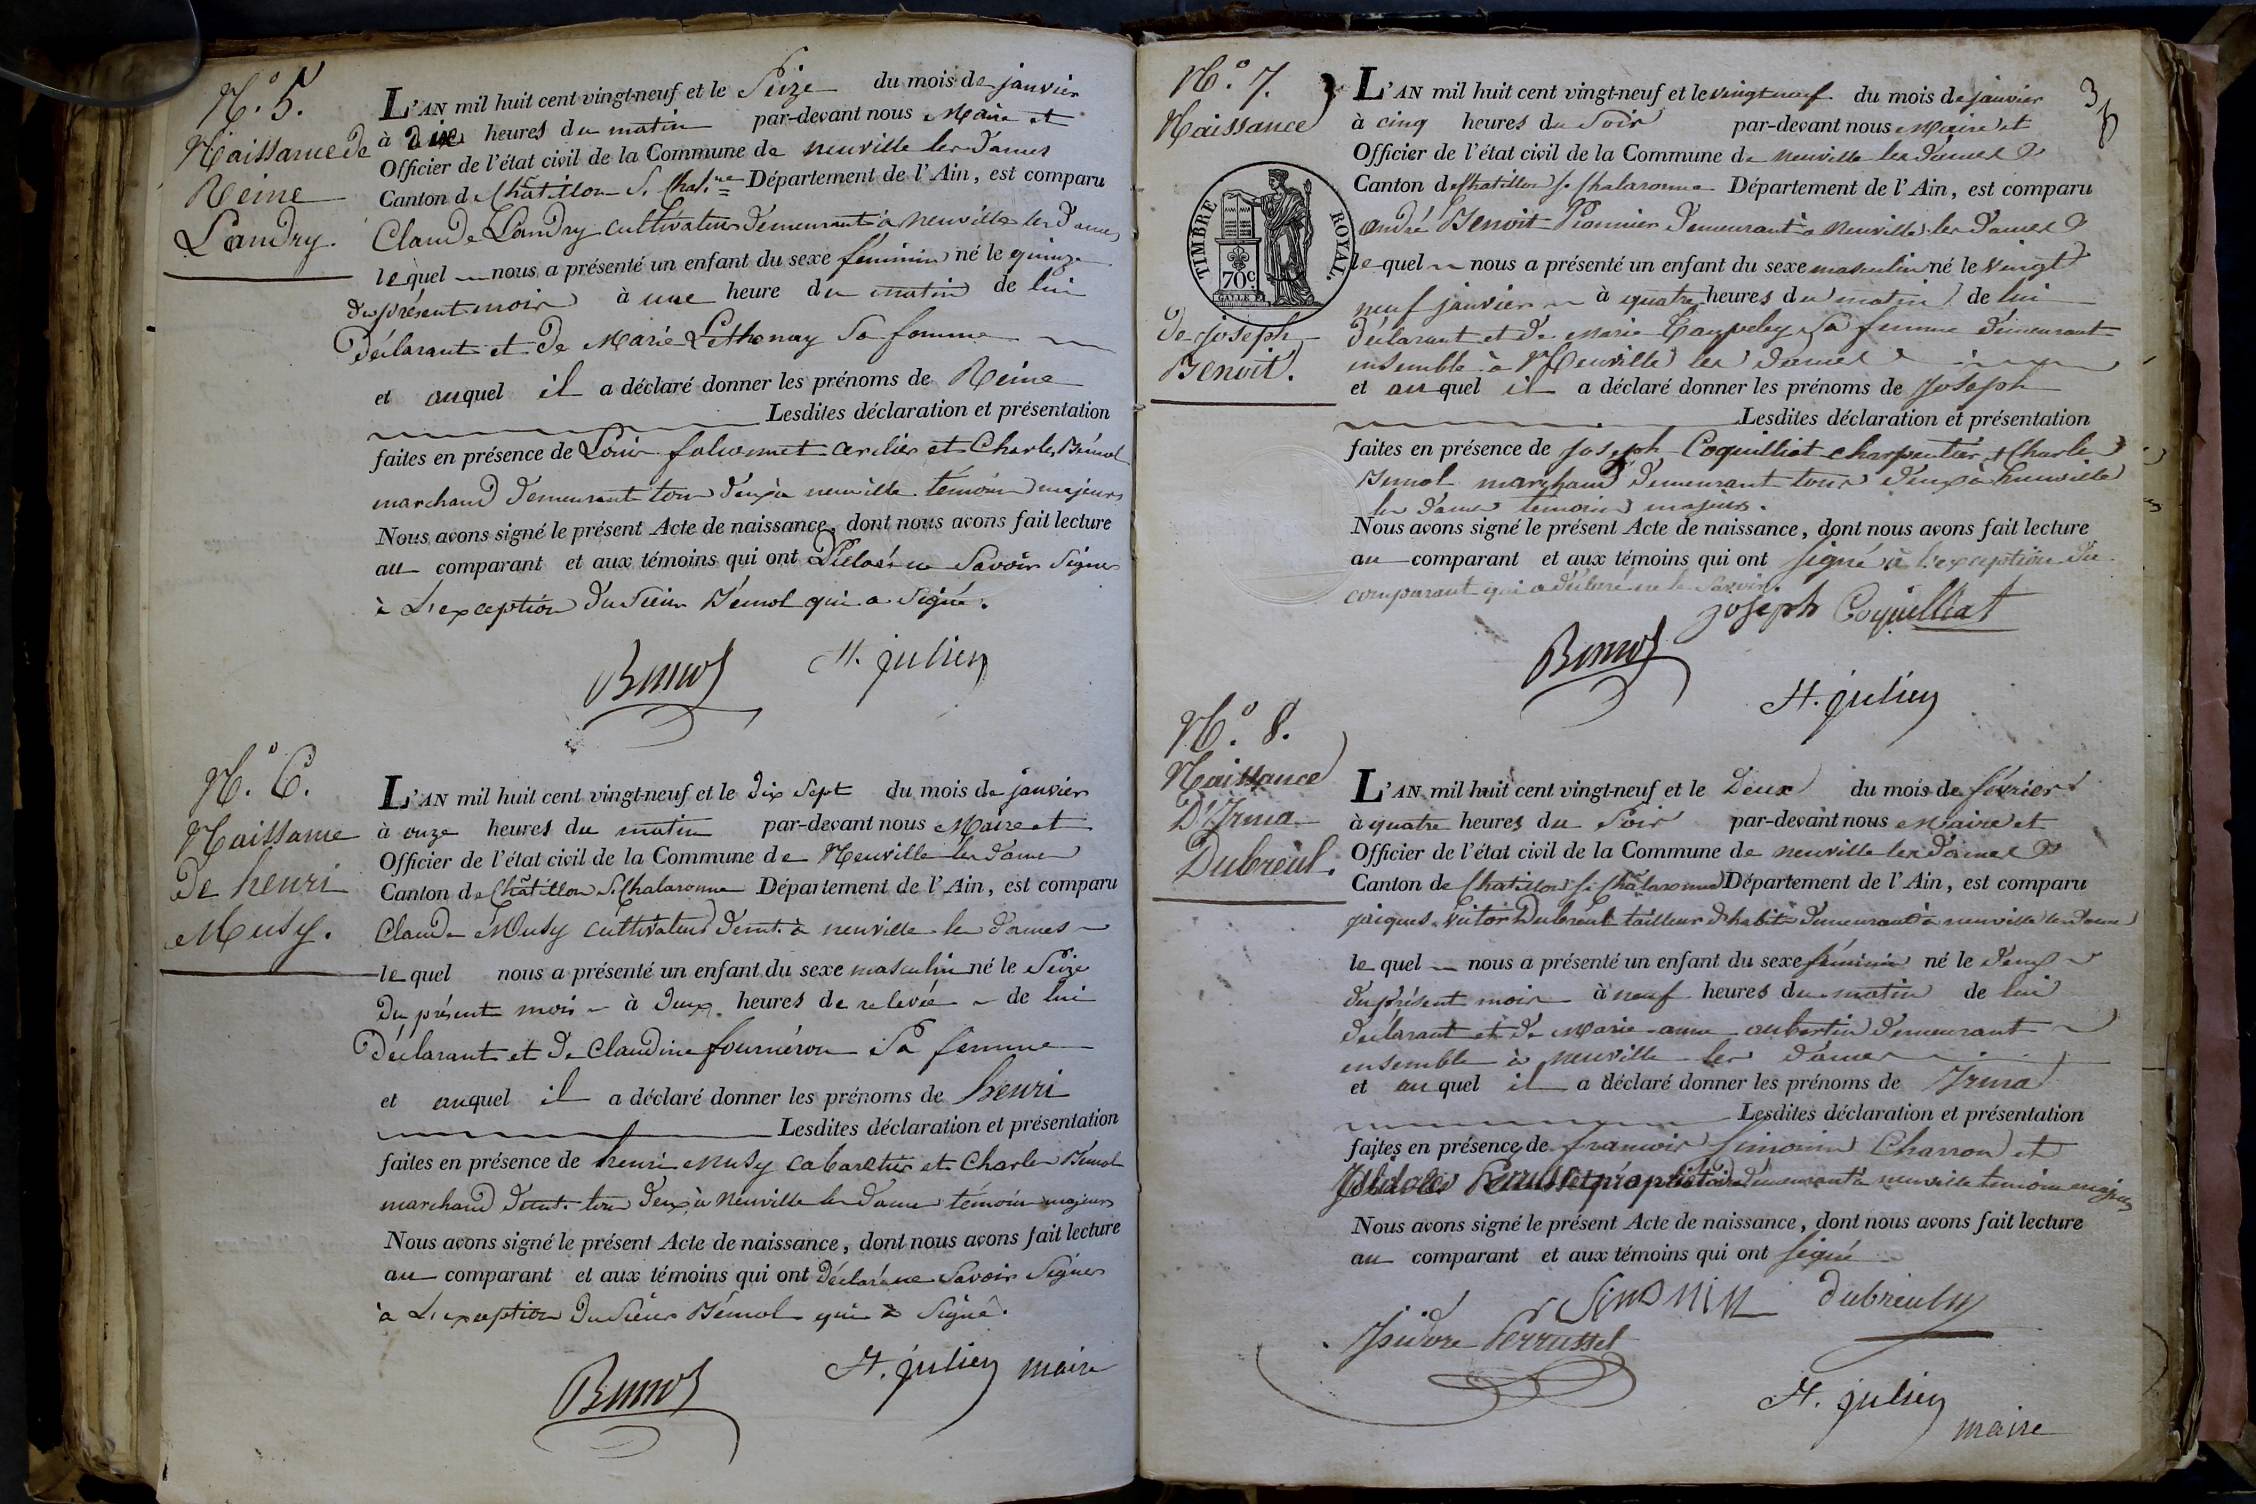 N.° 5.
Naissance de
Reine
Landry.
L'AN mil huit cent vingt-neuf et le Seize du mois de janvier
à dix heures du matin par-devant nous Maire et
Officier de l'état civil de la Commune de neuville les Dames
Canton de Châtillon S. Chal.ne Département de l'Ain, est comparu
Claude Landry cultivateur demeurant à neuville les dames
lequel nous a présenté un enfant du sexe féminin né le quinze
du présent mois à une heure du matin de lui
Déclarant et de Marie Lethenay Sa femme
et auquel il a déclaré donner les prénoms de Reine
Lesdites déclaration et présentation
faites en présence de Louis et Charles Bémol
marchand demeurant tous deux à neuville témoins majeurs
Nous avons signé le présent Acte de naissance, dont nous avons fait lecture
au comparant et aux témoins qui ont Déclaré ne Savoir Signer
à L'exception du Sieur Bémol qui a Signé.
H. julien
N.° 6.
Naissance
De henri
Musy.
L'AN mil huit cent vingt-neuf et le dix Sept du mois de janvier
à onze heures du matin par-devant nous Maire et
Officier de l'état civil de la Commune de Neuville les dames
Canton de Châtillon S. Chalaronne Département de l'Ain, est comparu
Claude Musy cultivateur demt. à neuville les dames
lequel nous a présenté un enfant du sexe masculin né le Seize
Du présent mois à deux heures de relevée de lui
Déclarant et De Claudine fourneron Sa femme
et auquel il a déclaré donner les prénoms de henri
Lesdites déclaration et présentation
faites en présence de henri Musy cabaretier et Charles Bémol
marchand demt. tous deux à Neuville les dames témoins majeurs
Nous avons signé le présent Acte de naissance, dont nous avons fait lecture
au comparant et aux témoins qui ont Déclaré ne Savoir Signer
à L'exception Du Sieur Bémol qui a Signé.
H. julien maire
N.° 7.
Naissance
De Joseph
Benoit.
TIMBRE ROYAL.
70c
3
L'AN mil huit cent vingt-neuf et le vingt neuf du mois de janvier
à cinq heures du Soir par-devant nous Maire et
Officier de l'état civil de la Commune de Neuville les dames
Canton de Chatillon s. Chalaronne Département de l'Ain, est comparu
andré Benoit Pionnier demeurant à Neuville les dames
lequel nous a présenté un enfant du sexe masculin né le vingt
neuf janvier à quatre heures du matin de lui
déclarant et de Marie sa femme demeurant
ensemble à Neuville les Dames
et auquel il a déclaré donner les prénoms de Joseph
Lesdites déclaration et présentation
faites en présence de Joseph Coquilliat charpentier, & Charles
Bemol marchand demeurant tous deux à Neuville
les dames témoins majeurs.
Nous avons signé le présent Acte de naissance, dont nous avons fait lecture
au comparant et aux témoins qui ont signé à l'exception du
comparant qui a déclaré ne le Savoir.
Joseph Coquilliat
H. julien
N.° 8.
Naissance
D'Irma
Dubreul.
L'AN mil huit cent vingt-neuf et le Deux du mois de février
à quatre heures du Soir par-devant nous Maire et
Officier de l'état civil de la Commune de neuville les dames
Canton de Chatillon s. Chalaronne Département de l'Ain, est comparu
jacques victor Dubreul tailleur d'habits demeurant à neuville les dames
lequel nous a présenté un enfant du sexe féminin né le deux
du présent mois à neuf heures du matin de lui
déclarant et de Marie anne aubertin demeurant
ensemble à neuville les dames
et auquel il a déclaré donner les prénoms de Irma
Lesdites déclaration et présentation
faites en présence de francois Simonin Charron et
Isidore Perrusset propriétaire demeurant à neuville témoins majeurs
Nous avons signé le présent Acte de naissance, dont nous avons fait lecture
au comparant et aux témoins qui ont signé
Simonin dubreul
Isidore Perrussel
H. julien
maire